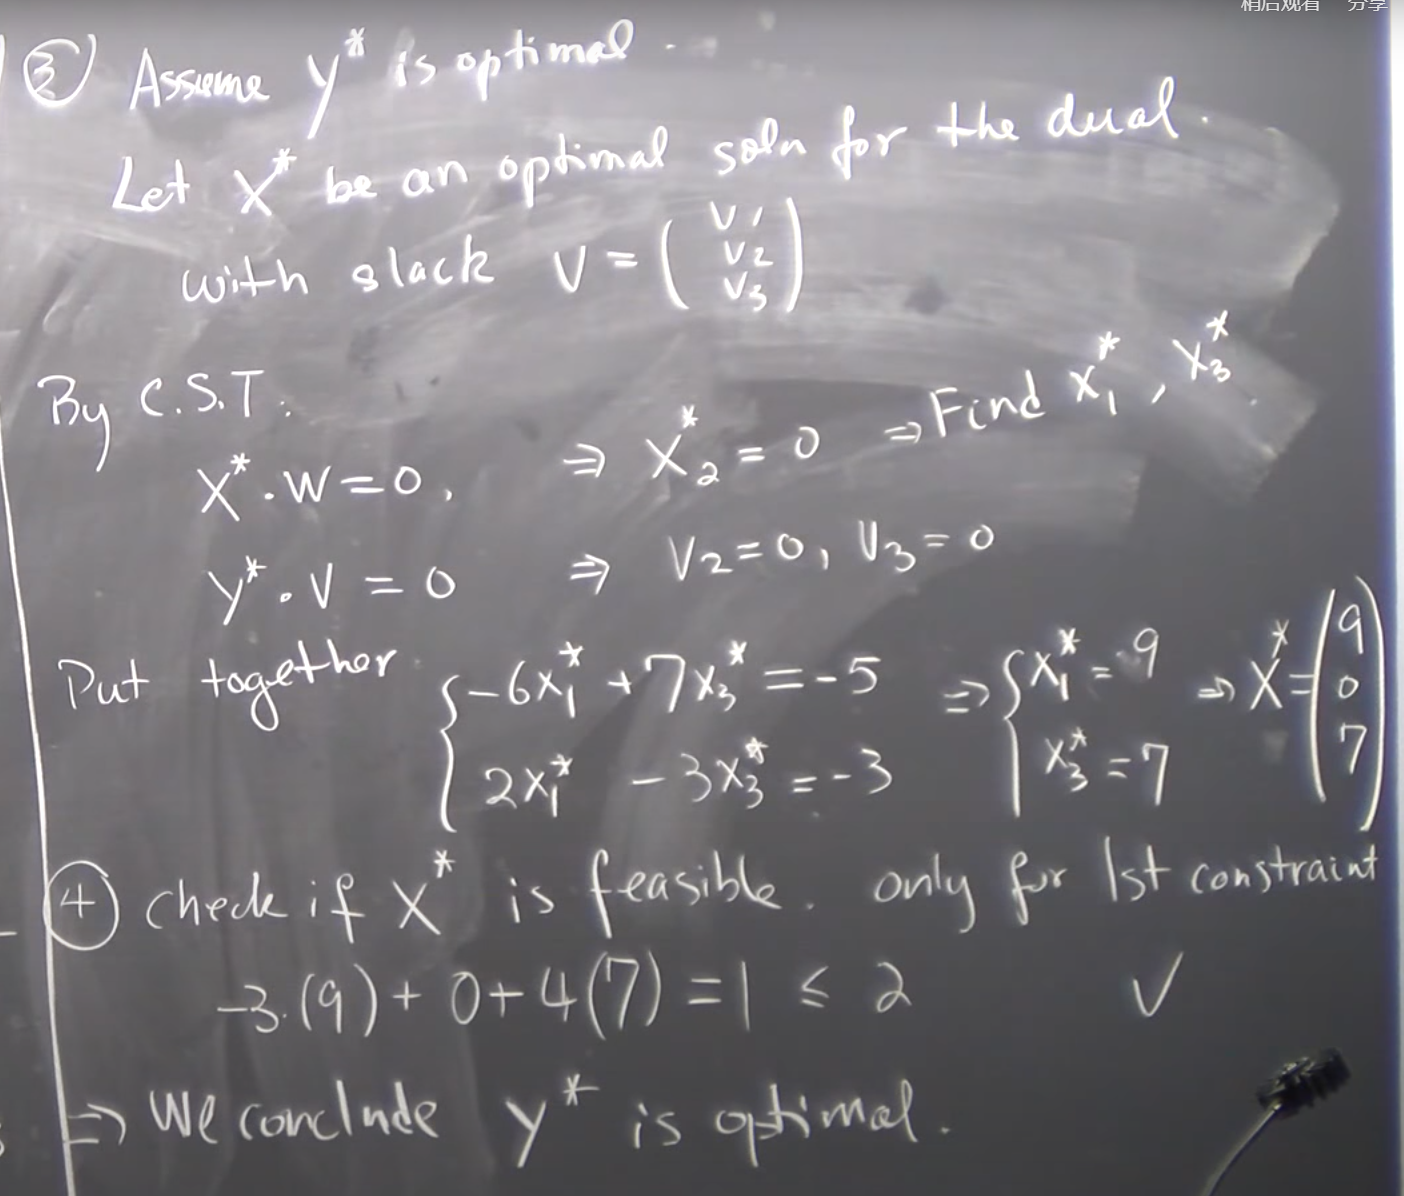 稍后观看 分享
③ Assume y* is optimal.
Let x* be an optimal soln for the dual.
with slack v = ( v1 v2 v3 )
By C.S.T.
x* · w = 0, ⇒ x2* = 0 ⇒ Find x1*, x3*
y* · v = 0 ⇒ v2 = 0, v3 = 0
Put together { -6x1* + 7x3* = -5 ⇒ { x1* = 9 ⇒ x* = ( 9 0 7 )
2x1* - 3x3* = -3 x3* = 7
④ check if x* is feasible. only for 1st constraint
-3·(9) + 0 + 4(7) = 1 ≤ 2 ✓
⇒ We conclude y* is optimal.